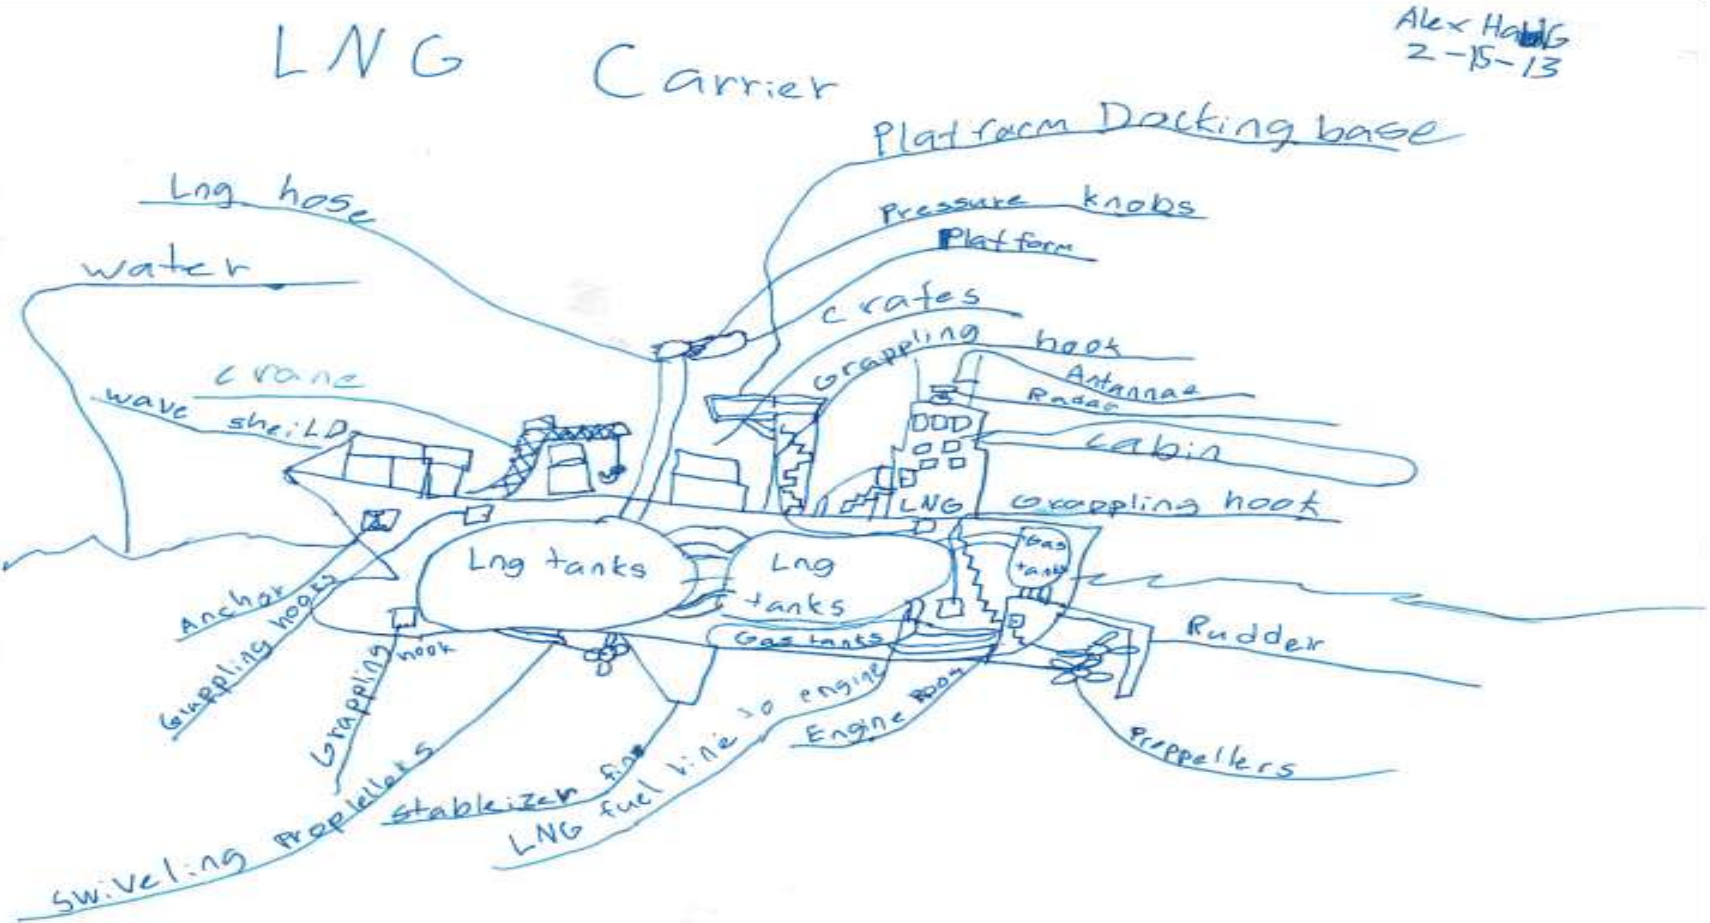 LNG Carrier
Alex
2-15-13
Platform Docking base
Lng hose
Pressure knobs
Platform
water
crates
Grappling hook
crane
Antannae
Radar
wave sheiLD
cabin
LNG
Grappling hook
Lng tanks
Lng
tanks
Gas
tank
Anchor
Grappling hooks
Grappling hook
Gas tanks
Rudder
Engine Room
Proppellers
swiveling
stableizer fin
LNG fuel line to engine